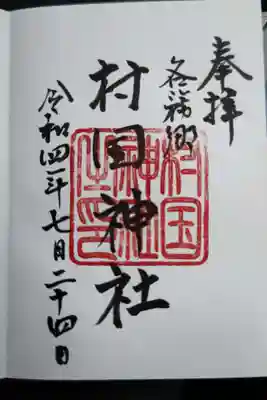 奉拝
各務郷
村国神社
令和四年七月二十四日
村国神社之印